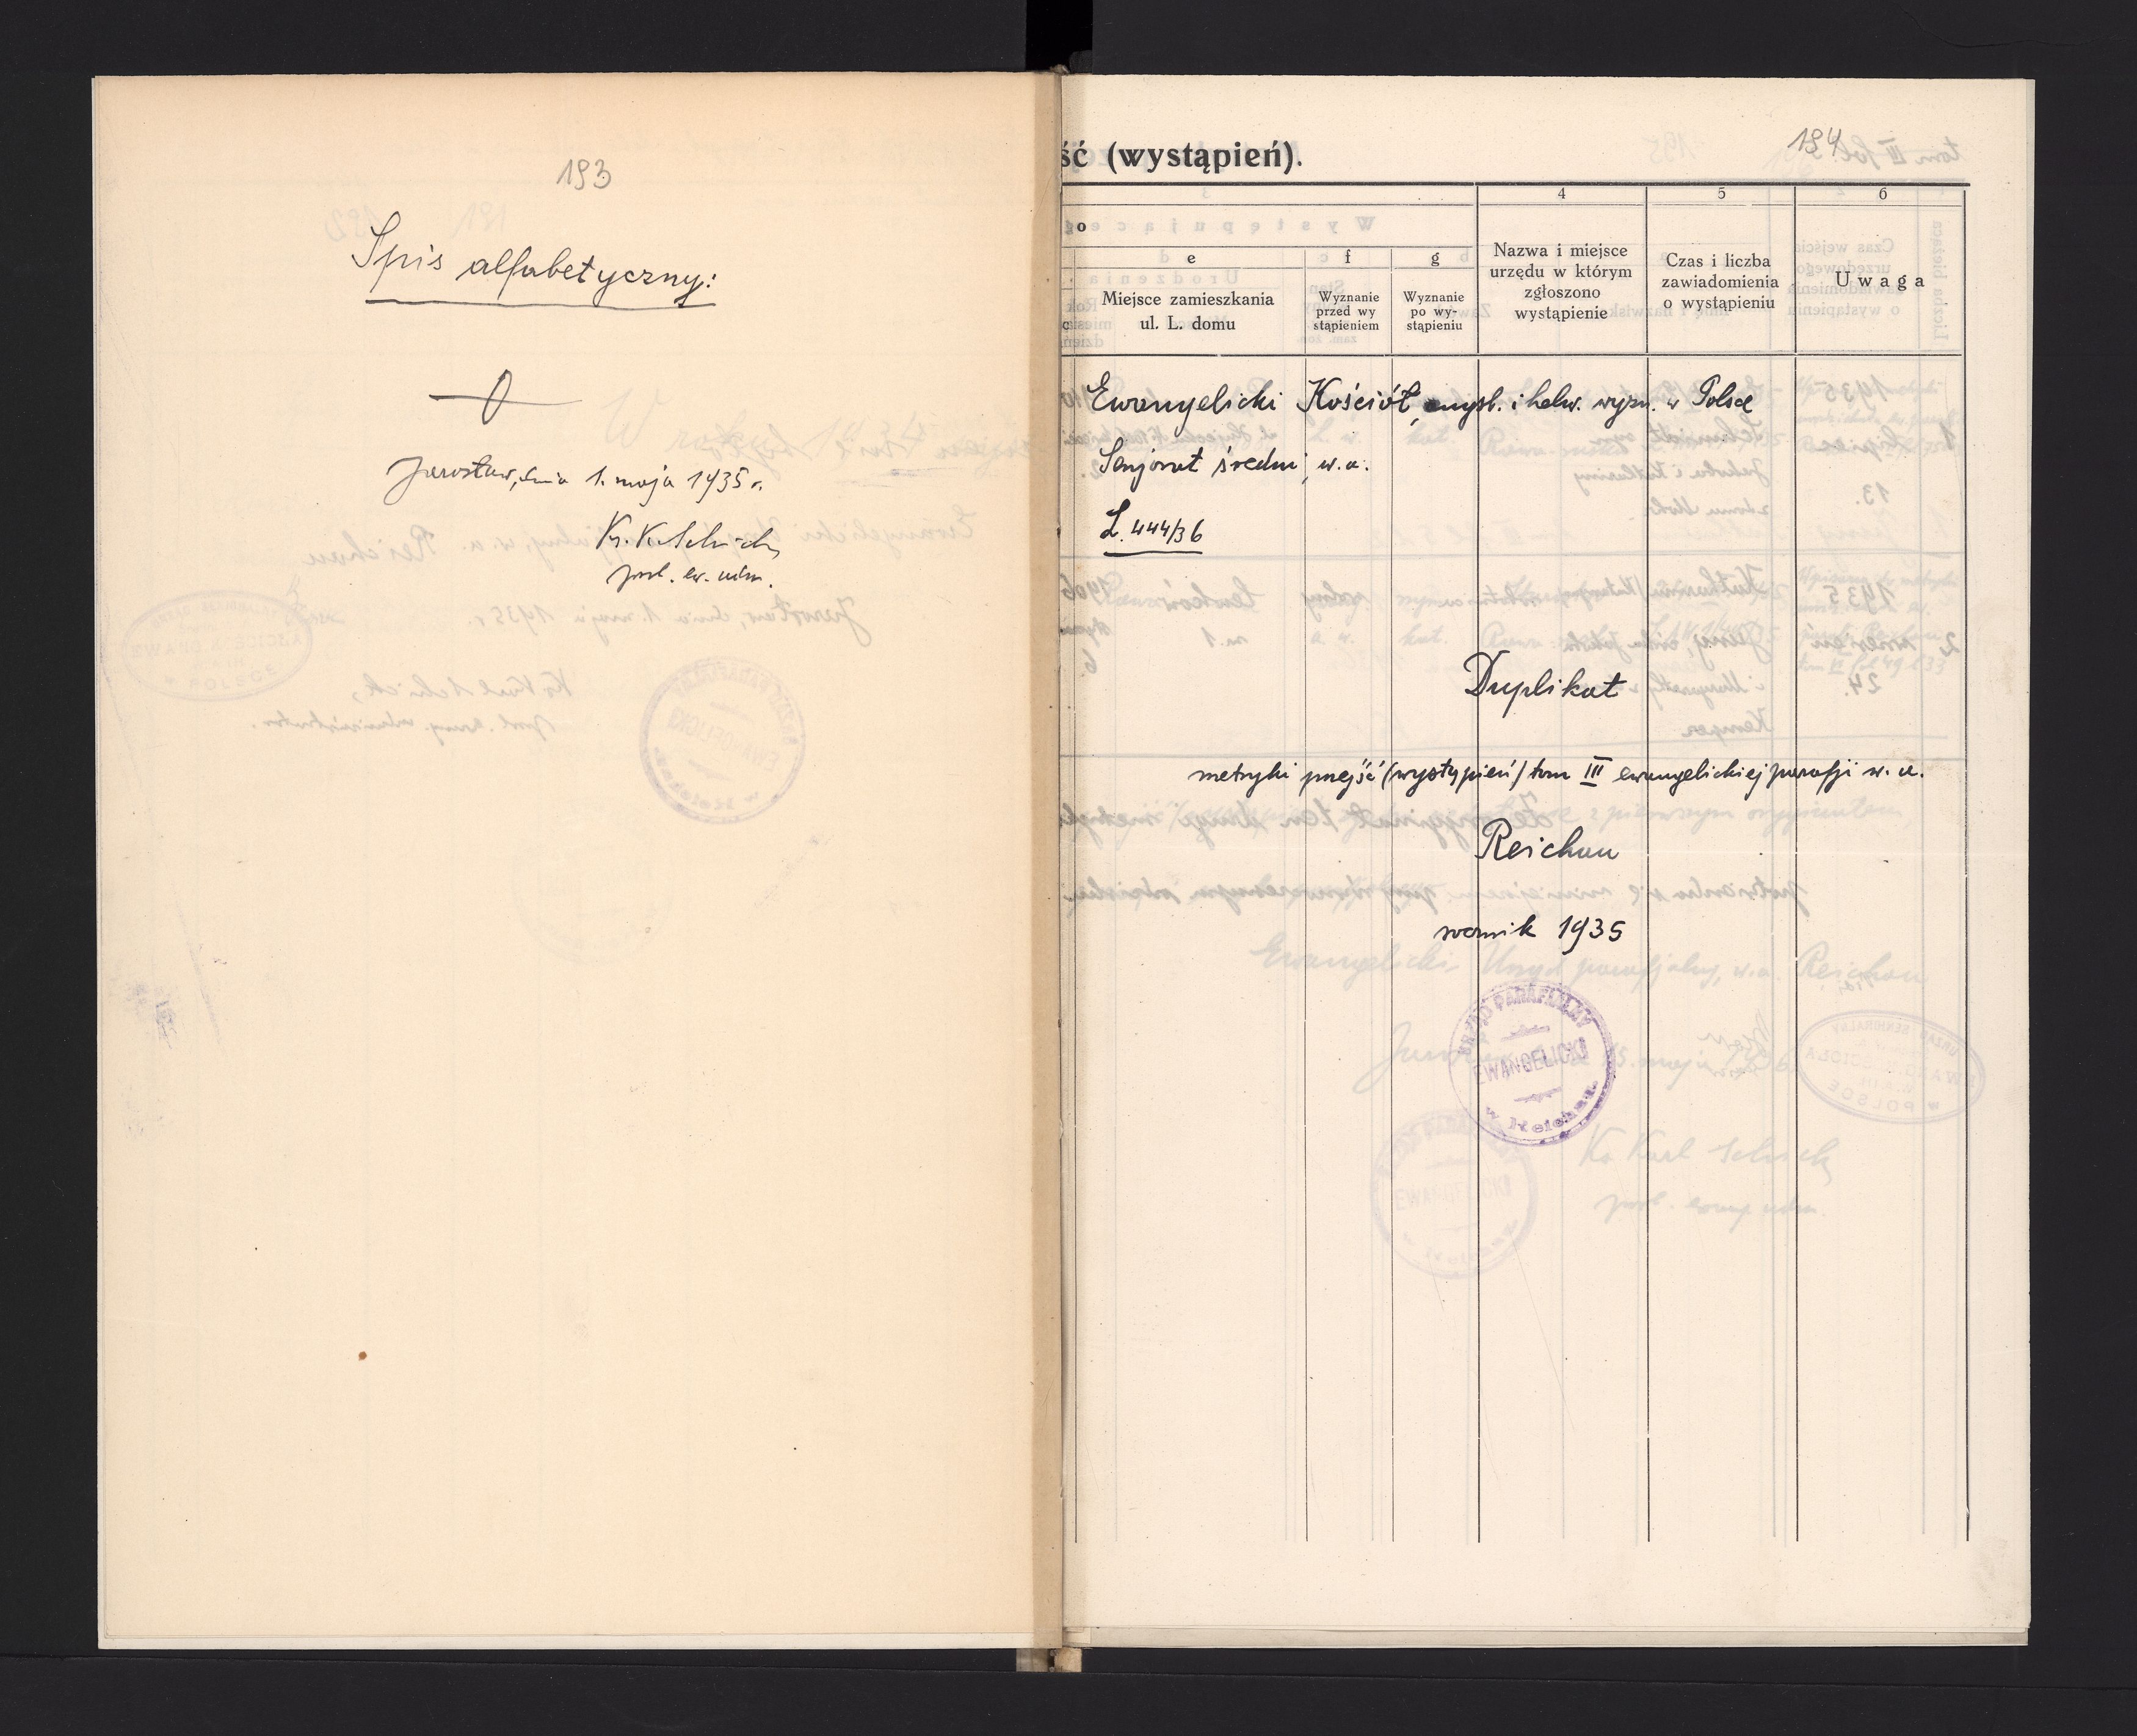 193
Spis alfabetyczny:
Jarosław, dnia 1. maja 1935 r.
Ks. K. Schick,
prob. ew. adm.
194
ść (wystąpień).
4
5
6
o
e
f
g
Miejsce zamieszkania
ul. L. domu
Wyznanie
przed wy
stąpieniem
Wyznanie
po wy-
stąpieniu
Nazwa i miejsce
urzędu w którym
zgłoszono
wystąpienie
Czas i liczba
zawiadomienia
o wystąpieniu
Uwaga
Ewangelicki Kościół, augsb. i helw. wyzn. w Polsce
Senjorat średni, w.a.
L. 444/36
Duplikat
metryki przejść (wystąpień) tom III ewangelickiej parafji w. a.
Reichau
rocznik 1935
URZĄD PARAFIALNY
EWANGELICKI
w Reichau